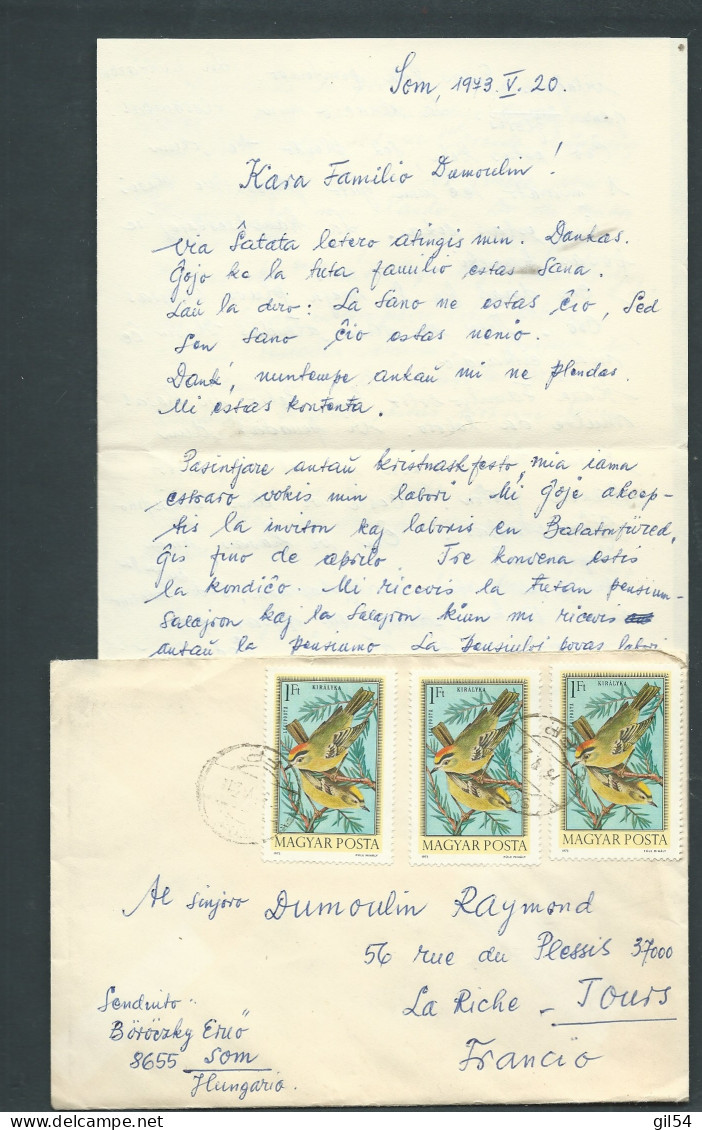 Som, 1973. V. 20.
Kara Familio Dumoulin!
Via Ŝatata letero atingis min. Dankas.
Ĝojo ke la tuta familio estas sana.
Laŭ la diro: La Sano ne estas ĉio, sed
sen sano ĉio estas nenio.
Dank', nuntempe ankaŭ mi ne plendas.
Mi estas kontenta.
Pasintjare antaŭ kristnaskfesto, mia iama
estraro vokis min labori. Mi ĝoje akcep-
tis la inviton kaj laboris en Balatonfüred,
ĝis fino de aprilo. Tre konvena estis
la kondiĉo. Mi ricevis la tutan pensium-
salajron kaj la salajron kiun mi ricevis
antaŭ la pensiumo. La pensiuloj povas labori
1 Ft
KIRÁLYKA
MAGYAR POSTA
1973
FÜLE MIHÁLY
1 Ft
KIRÁLYKA
MAGYAR POSTA
1973
FÜLE MIHÁLY
1 Ft
KIRÁLYKA
MAGYAR POSTA
1973
FÜLE MIHÁLY
Al sinjoro DUMOULIN RAYMOND
56 rue du Plessis 37000
La Riche - TOURS
Francio
Sendinto:
Böröczky Ernő
8655 Som
Hungario.
gil54